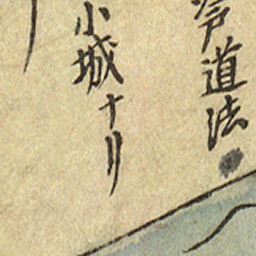 道法
小城ナリ